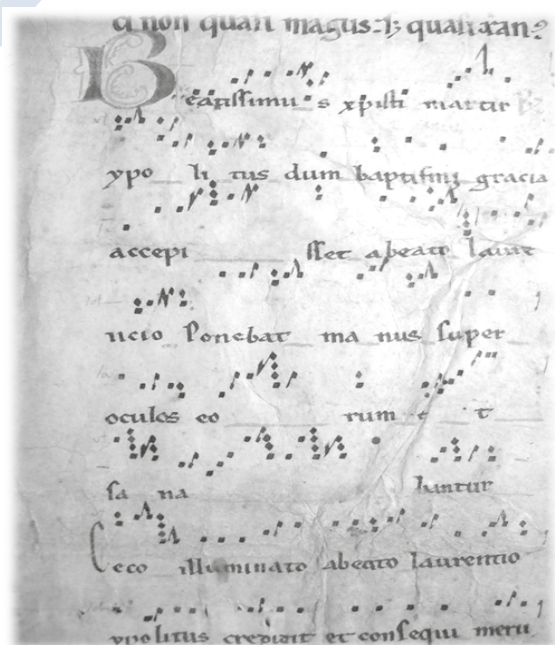 q non quasi magus. s; quasi xan?
Beatissimus xpisti martir
ypo li tus dum baptismi gracia
accepi sset abeato laure
ncio Ponebat ma nus super
oculos eo rum e t
sa na bantur
Ceco illuminato abeato laurentio
ypolitus credidit et consequi meru